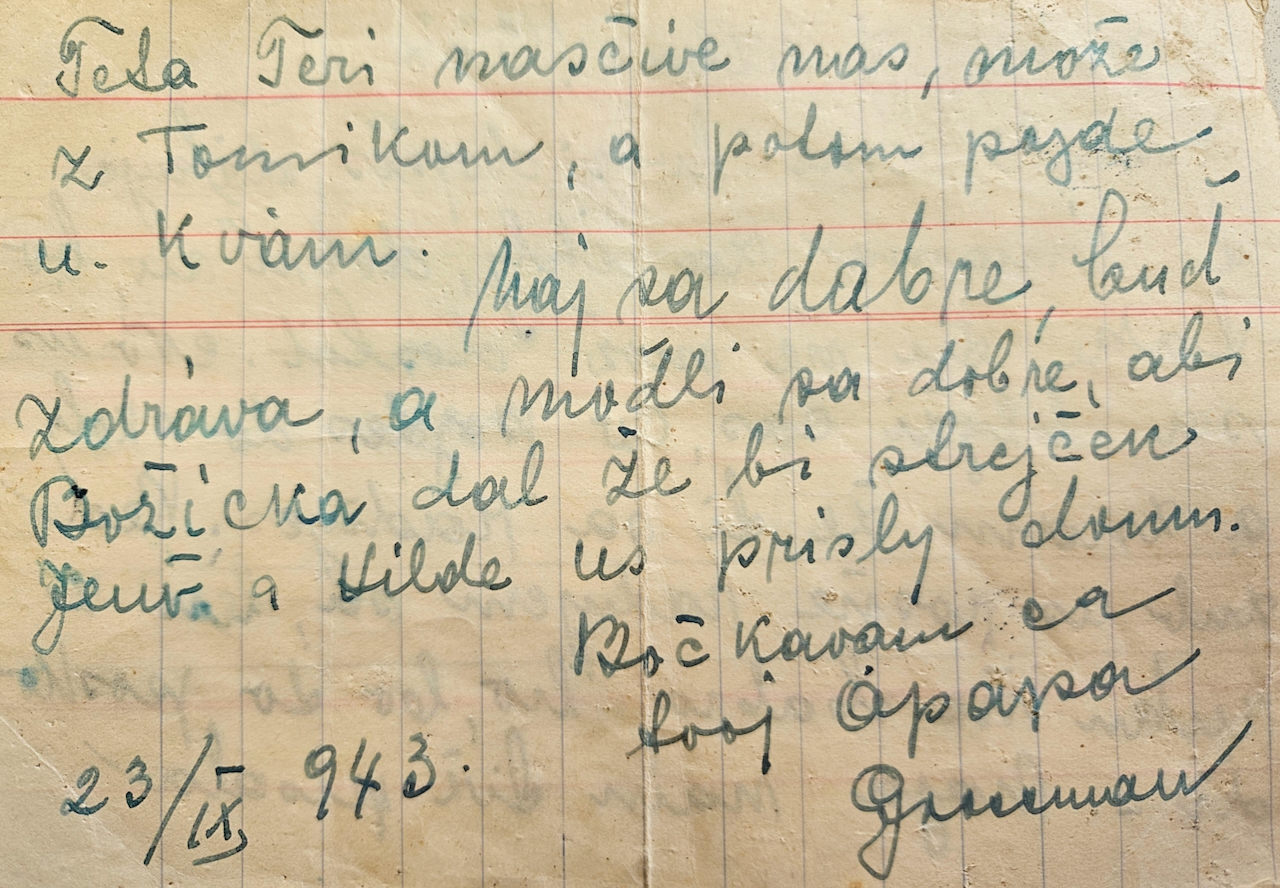 Teta Teri nasčive nas, može
z Tomikom, a potom pojde
u. Kvám. Maj sa dobre, buď
zdráva, a modli sa dobre, abi
Božička dal že bi strejček
Jenő a Hilde us prisly domu.
Bočkavam ca
tvoj Ópapa
Grossman
23/IX 943.